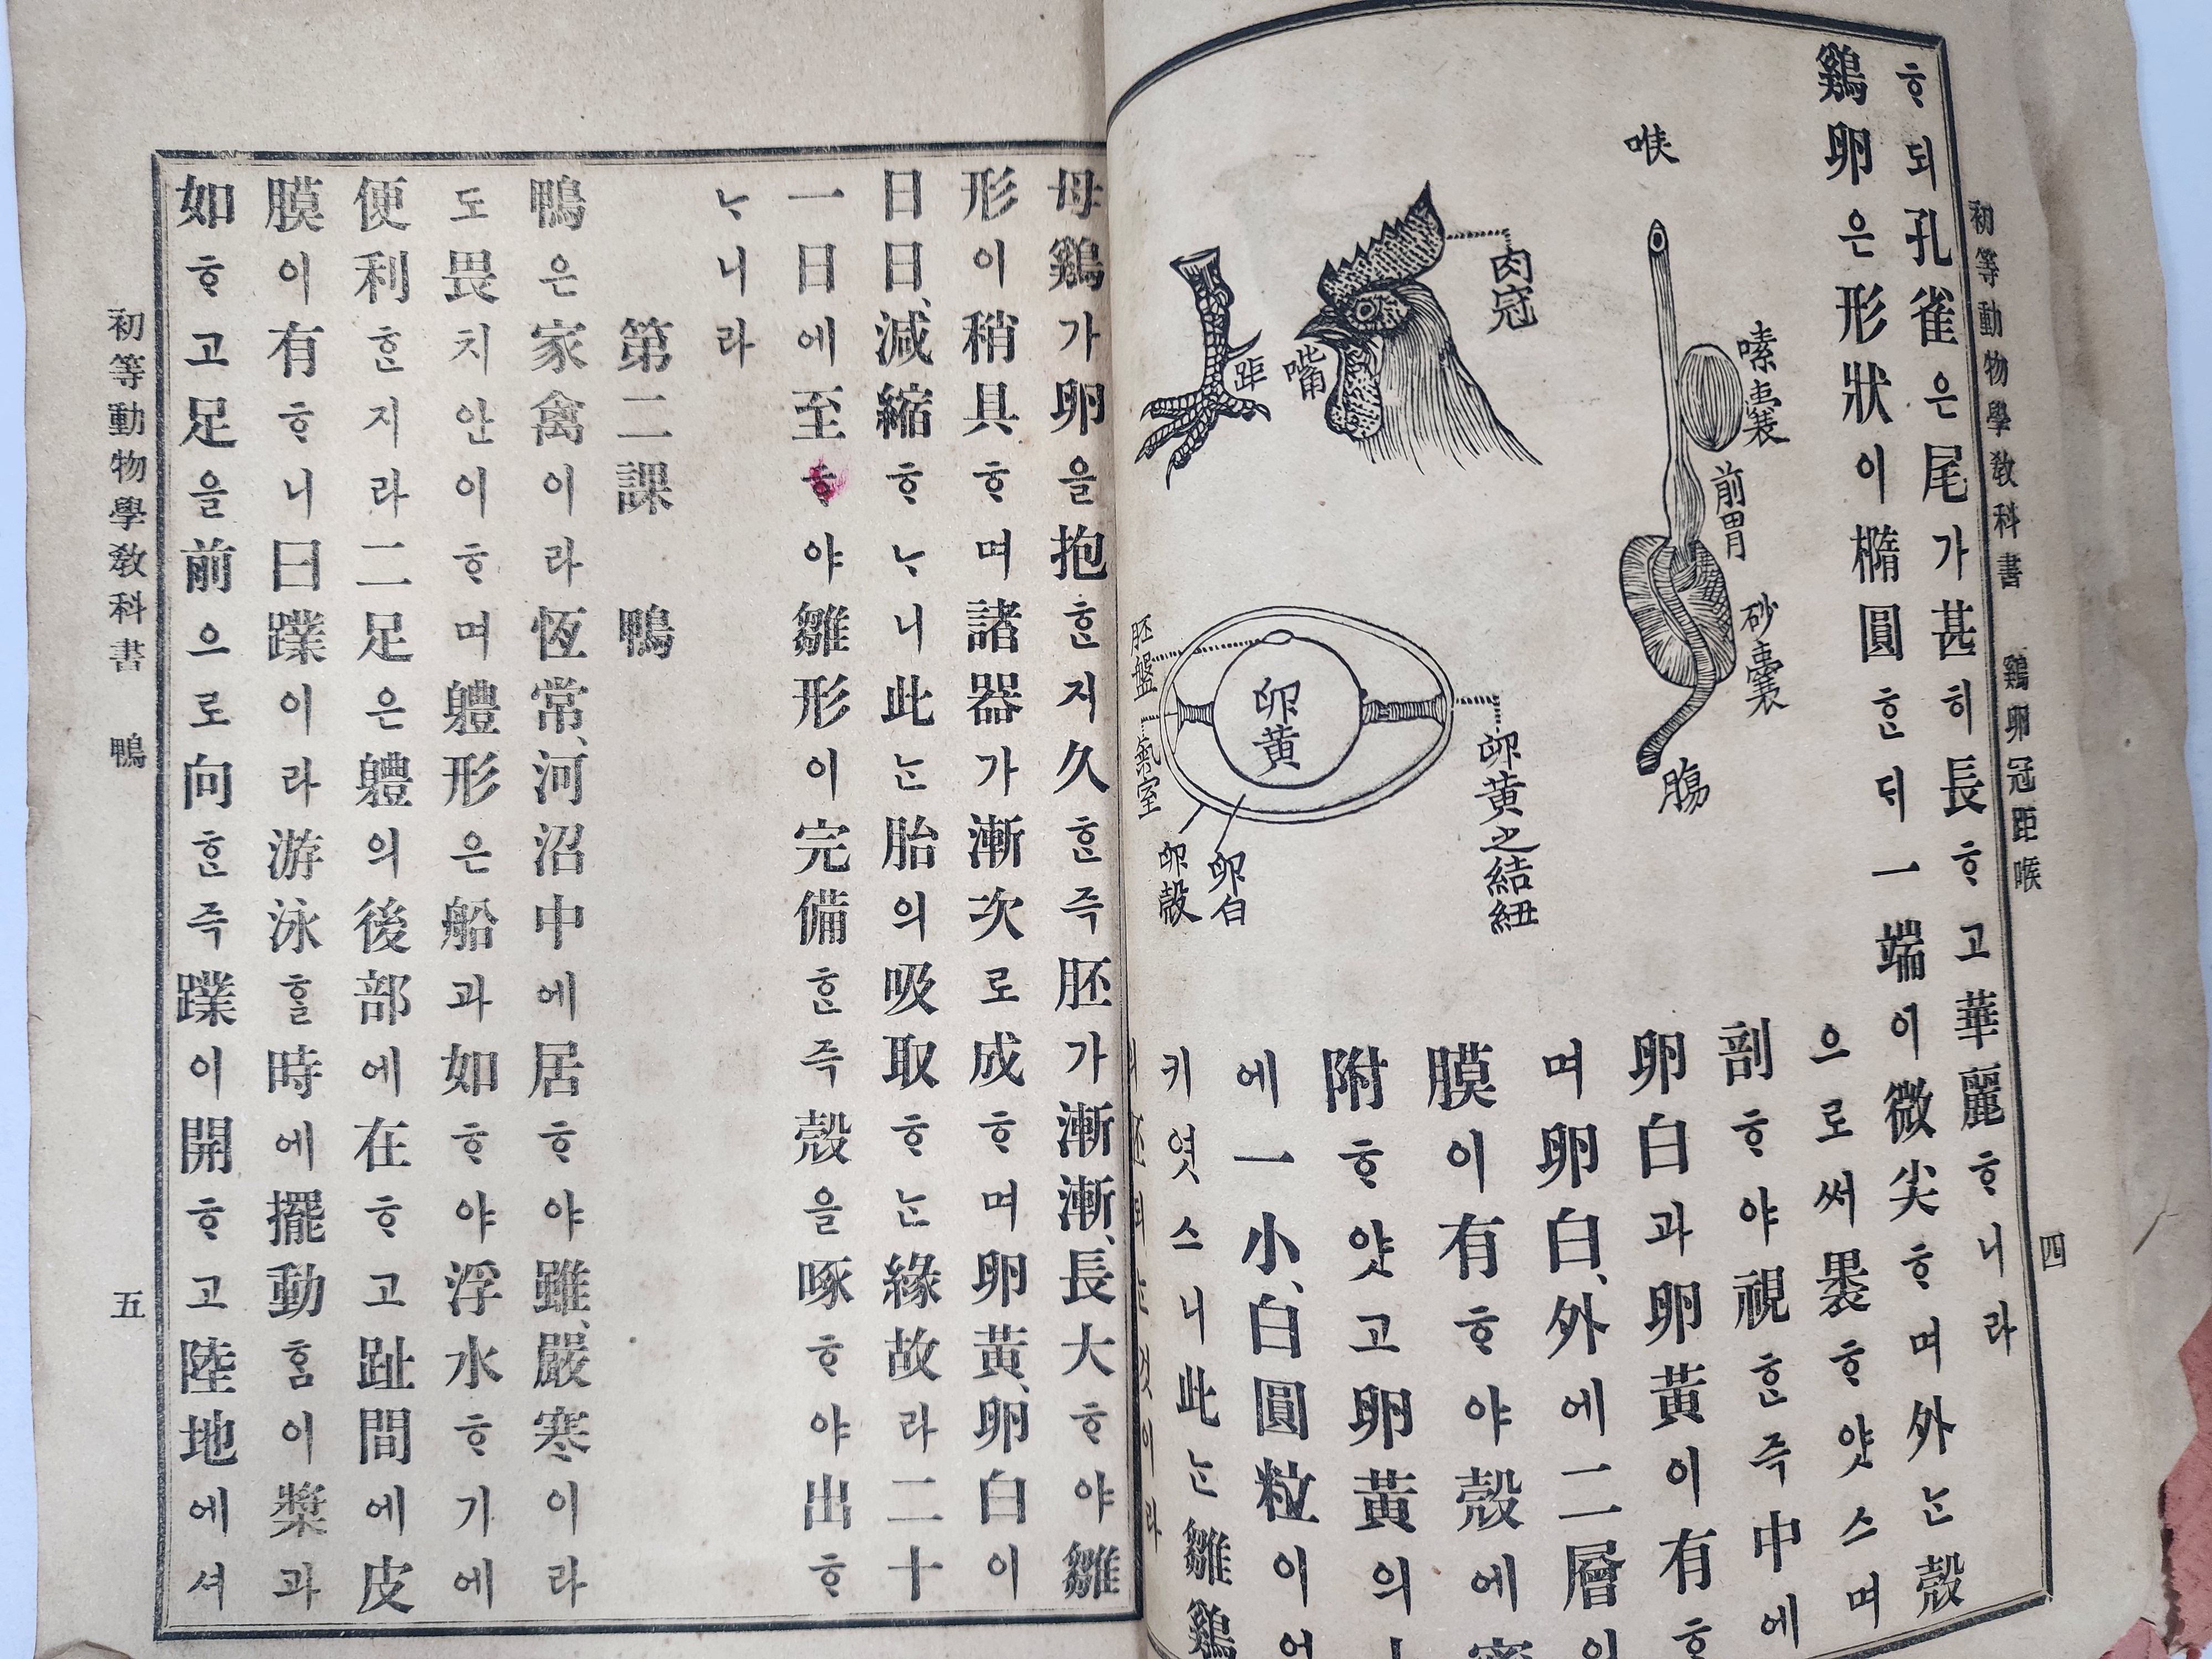 初等動物學敎科書 鷄卵冠距喉 四
ᄒᆞ되孔雀은尾가甚히長ᄒᆞ고華麗ᄒᆞ니라
鷄卵은形狀이橢圓ᄒᆞᆫᄃᆡ一端이微尖ᄒᆞ며外ᄂᆞᆫ殼
으로써褁ᄒᆞ얏스며
剖ᄒᆞ야視ᄒᆞᆫ즉中에
卵白과卵黃이有ᄒᆞ
며卵白、外에二層의
膜이有ᄒᆞ야殼에密
附ᄒᆞ얏고卵黃의
에一小、白圓粒이어
키엿스니此ᄂᆞᆫ雛鷄
喉
嗉囊
前胃
砂囊
膓
肉冠
嘴
距
胚盤
氣室
卵黃
卵黃之結紐
卵白
卵殼
母鷄가卵을抱ᄒᆞᆫ지久ᄒᆞᆫ즉胚가漸漸、長大ᄒᆞ야雛
形이稍具ᄒᆞ며諸器가漸次로成ᄒᆞ며卵黃、卵白이
日日、減縮ᄒᆞᄂᆞ니此ᄂᆞᆫ胎의吸取ᄒᆞᄂᆞᆫ緣故라二十
一日에至ᄒᆞ야雛形이完備ᄒᆞᆫ즉殼을啄ᄒᆞ야出ᄒᆞ
ᄂᆞ니라
第二課 鴨
鴨은家禽이라恆常、河沼中에居ᄒᆞ야雖、嚴寒이라
도畏치안이ᄒᆞ며軆形은船과如ᄒᆞ야浮水ᄒᆞ기에
便利ᄒᆞᆫ지라二足은軆의後部에在ᄒᆞ고趾間에皮
膜이有ᄒᆞ니曰蹼이라游泳ᄒᆞᆯ時에擺動ᄒᆞᆷ이槳과
如ᄒᆞ고足을前으로向ᄒᆞᆫ즉蹼이開ᄒᆞ고陸地에셔
初等動物學敎科書 鴨 五